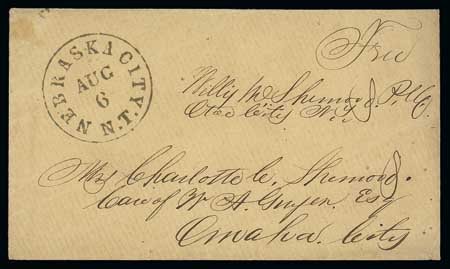 NEBRASKA CITY. N.T.
AUG
6
Free
Willy M. Shimond, P.M.
Otoe City N.T.
Mrs Charlotte C. Shimond.
Care of W. A. Gwyer. Esq
Omaha. City